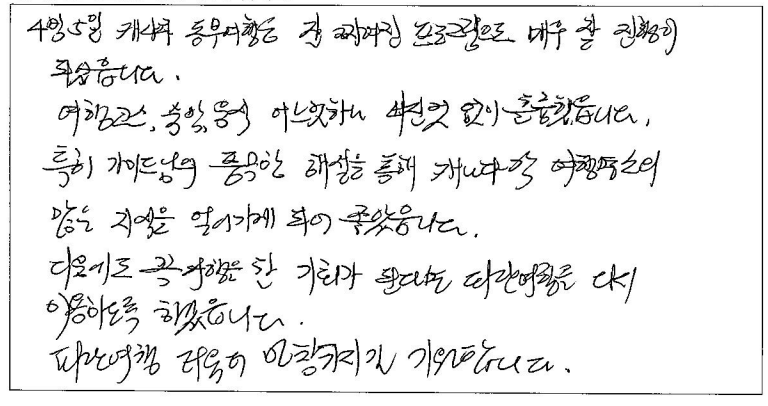 4박5일 캐나다 동부여행은 잘 짜여진 프로그램으로 매우 잘 진행이
되었읍니다.
여행코스, 숙박, 음식 어느것하나 빠진것 없이 훌륭했읍니다.
특히 가이드님의 풍부한 해설을 통해 캐나다와 여행명소의
많은 지식을 얻어가게 되어 좋았읍니다.
다음에도 꼭 여행을 할 기회가 된다면 파란여행을 다시
이용하도록 하겠읍니다.
파란여행 더욱히 번창하시길 기원합니다.